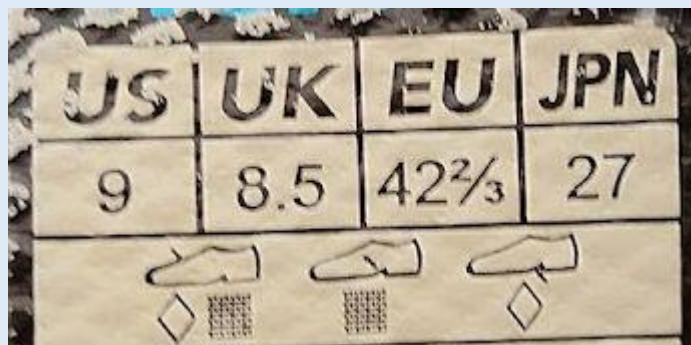 US UK EU JPN
9 8.5 42⅔ 27